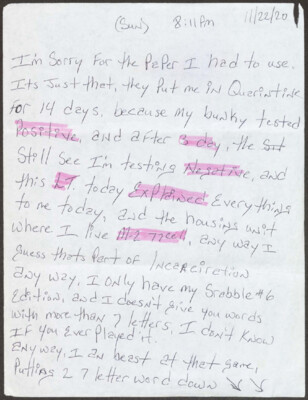 (Sun) 8:11Pm 11/22/20
I'm Sorry For the PePer I had to use.
Its Just that, they Put me in Querintine
For 14 days, because my bunky tested
Positive, and after 3 day, the
Still See I'm testing Negative, and
this LT. today Explained Every thing
to me today, and the housing unit
where I live, any way I
guess thats Part of Incarceiration
any way, I only have my Scabble #6
Edition, and I doesn't give you words
with more than 7 letters, I don't Know
If you Ever Played it.
Any way, I an beast at that game,
Putting 2 7 letter word down